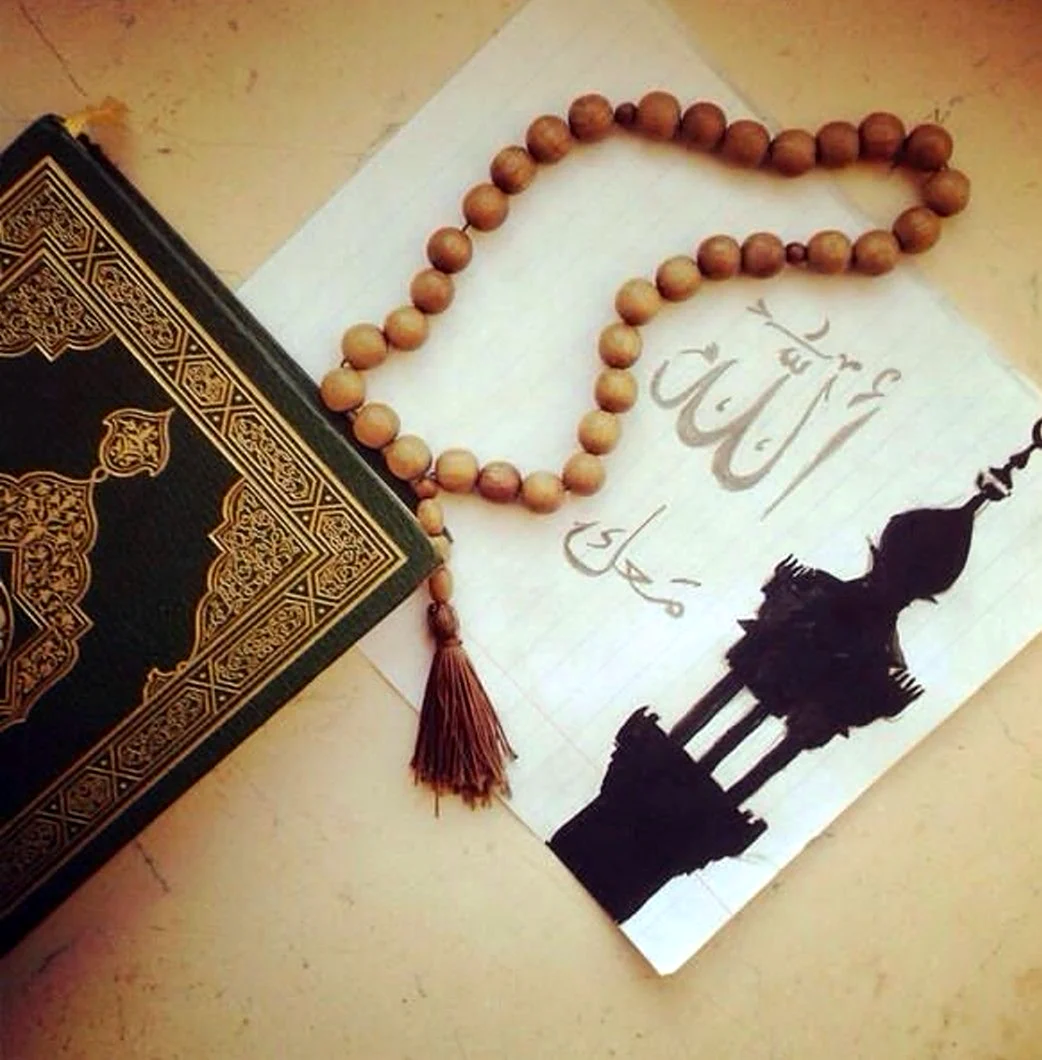 أللّه
مَعك